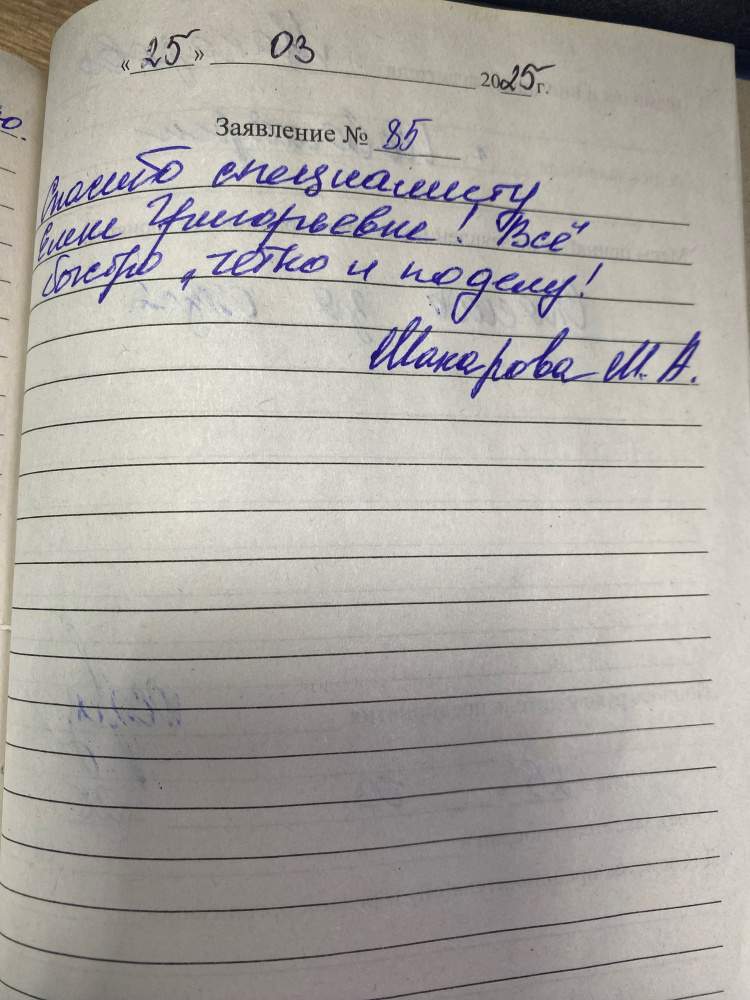 «25» 03 2025 г.
Заявление № 85
Спасибо специалисту
Елене Григорьевне! Всё
быстро, чётко и по делу!
Макарова М. А.